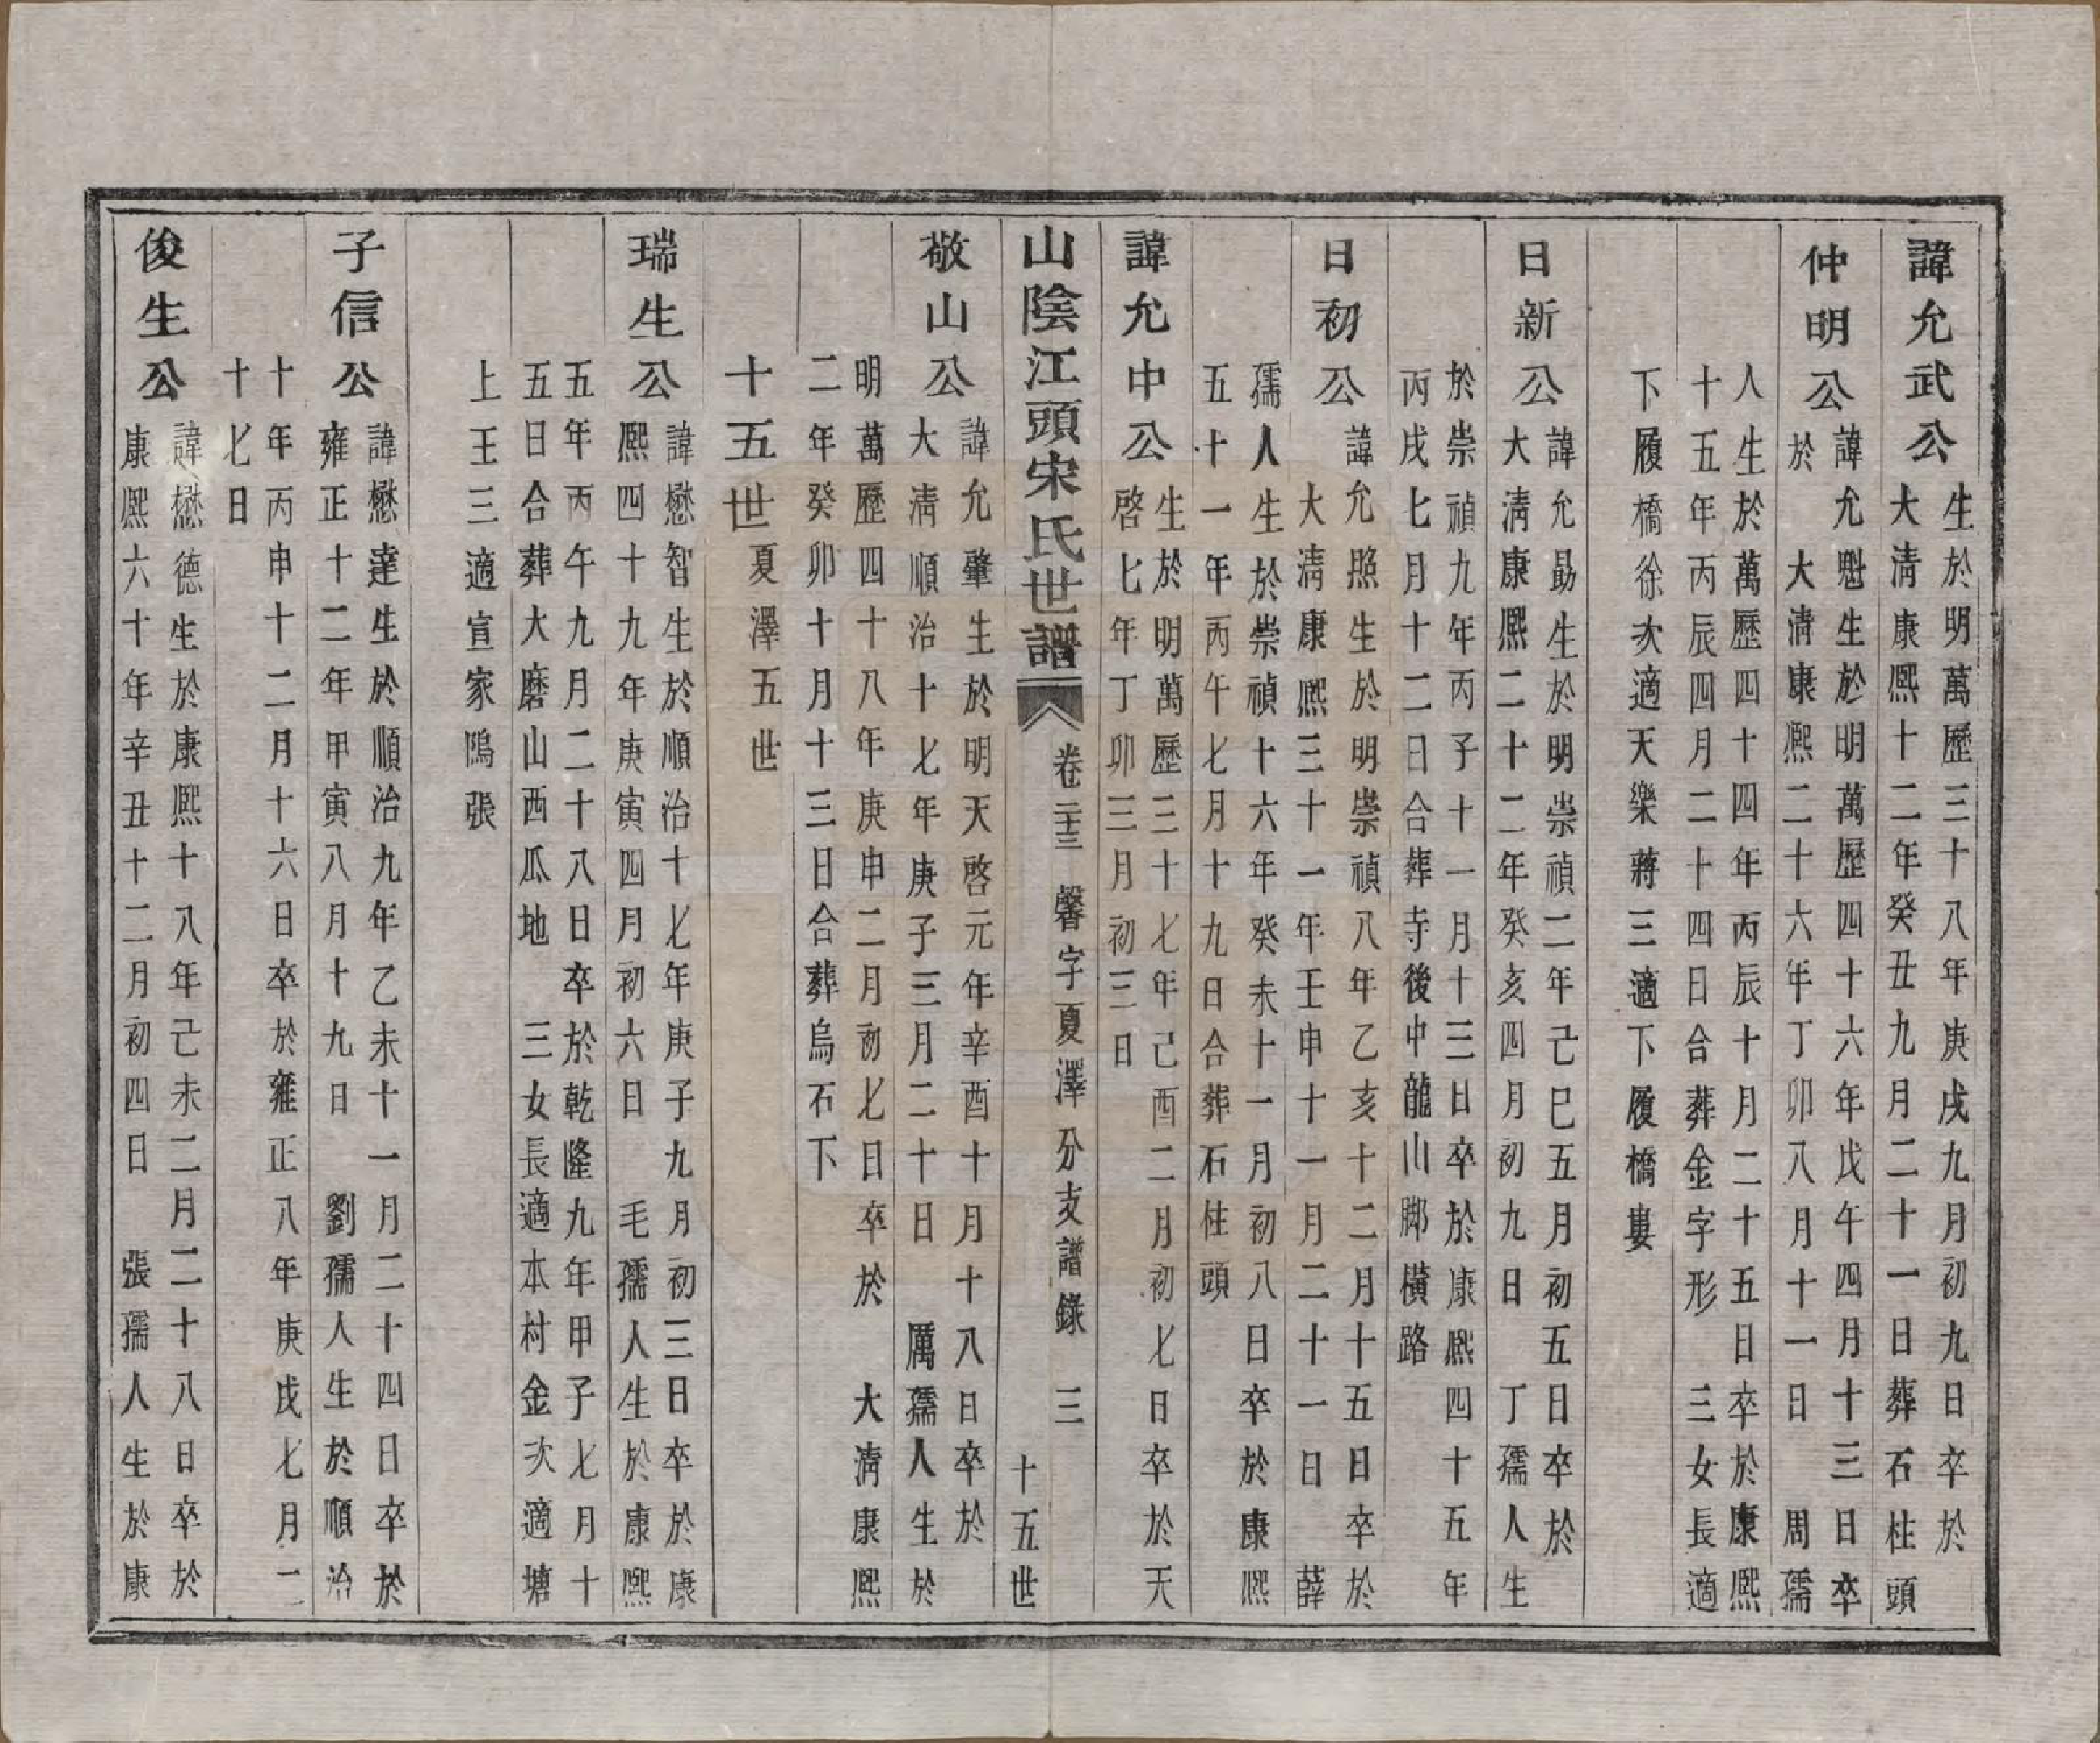 諱允武公
生於明萬歷三十八年庚戌九月初九日卒於
大淸康熙十二年癸丑九月二十一日葬石柱頭
仲明公
諱允魁生於明萬歷四十六年戊午四月十三日卒
於　大淸康熙二十六年丁卯八月十一日　周孺
人生於萬歷四十四年丙辰十月二十五日卒於康熙
十五年丙辰四月二十四日合葬金字形　三女長適
下履橋徐次適天樂蔣三適下履橋婁
日新公
諱允勗生於明崇禎二年己巳五月初五日卒於
大淸康熙二十二年癸亥四月初九日　丁孺人生
於崇禎九年丙子十一月十三日卒於康熙四十五年
丙戌七月十二日合葬寺後中龍山脚橫路
日初公
諱允照生於明崇禎八年乙亥十二月十五日卒於
大淸康熙三十一年壬申十一月二十一日　薛
孺人生於崇禎十六年癸未十一月初八日卒於康熙
五十一年丙午七月十九日合葬石柱頭
諱允中公
生於明萬歷三十七年己酉二月初七日卒於天
啓七年丁卯三月初三日
山陰江頭宋氏世譜　卷二十三　馨字夏澤分支譜錄　三　十五世
敬山公
諱允肇生於明天啓元年辛酉十月十八日卒於
大淸順治十七年庚子三月二十日　厲孺人生於
明萬歷四十八年庚申二月初七日卒於　大淸康熙
二年癸卯十月十三日合葬烏石下
十五世夏澤五世
瑞生公
諱懋智生於順治十七年庚子九月初三日卒於康
熙四十九年庚寅四月初六日　毛孺人生於康熙
五年丙午九月二十八日卒於乾隆九年甲子七月十
五日合葬大磨山西瓜地　三女長適本村金次適塘
上王三適宣家隖張
子信公
諱懋達生於順治九年乙未十一月二十四日卒於
雍正十二年甲寅八月十九日　劉孺人生於順治
十年丙申十二月十六日卒於雍正八年庚戌七月二
十七日
俊生公
諱懋德生於康熙十八年己未二月二十八日卒於
康熙六十年辛丑十二月初四日　張孺人生於康